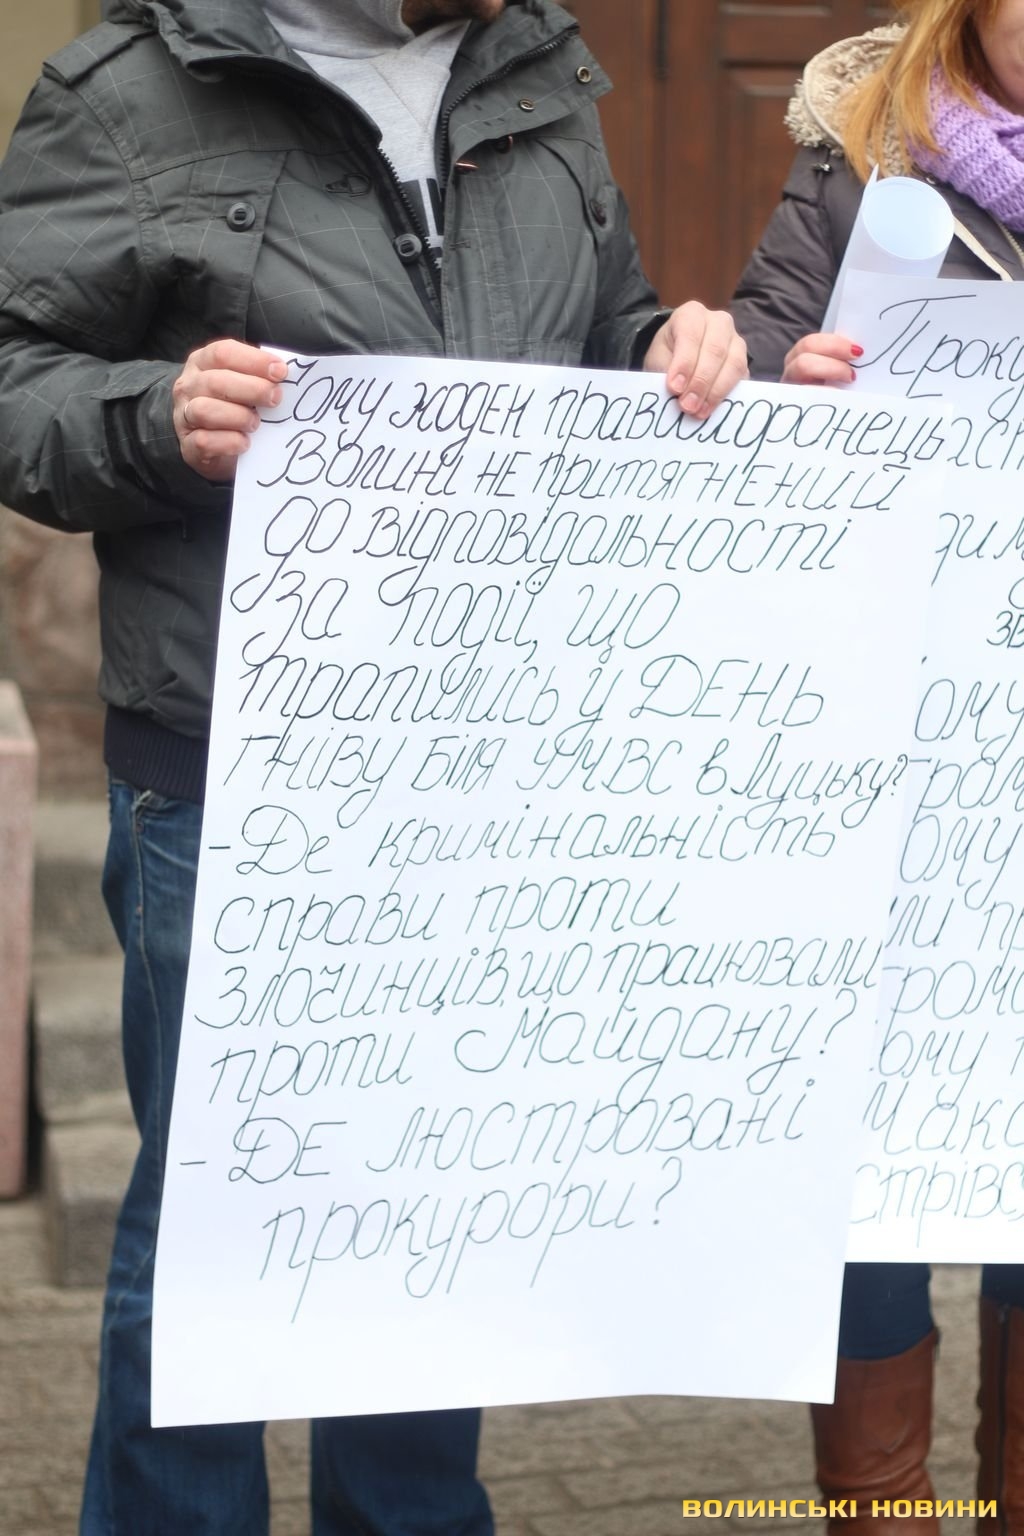 Чому жоден правоохоронець
Волині не притягнений
до відповідальності
за події, що
трапились у ДЕНЬ
гніву біля УМВС в Луцьку?
- Де кримінальність
справи проти
злочинців, що працювали
проти Майдану?
- ДЕ люстровані
прокурори?
Проку
зв
ому
ром
ому
ли пр
ром
ому
Мако
стрівс
ВОЛИНСЬКІ НОВИНИ